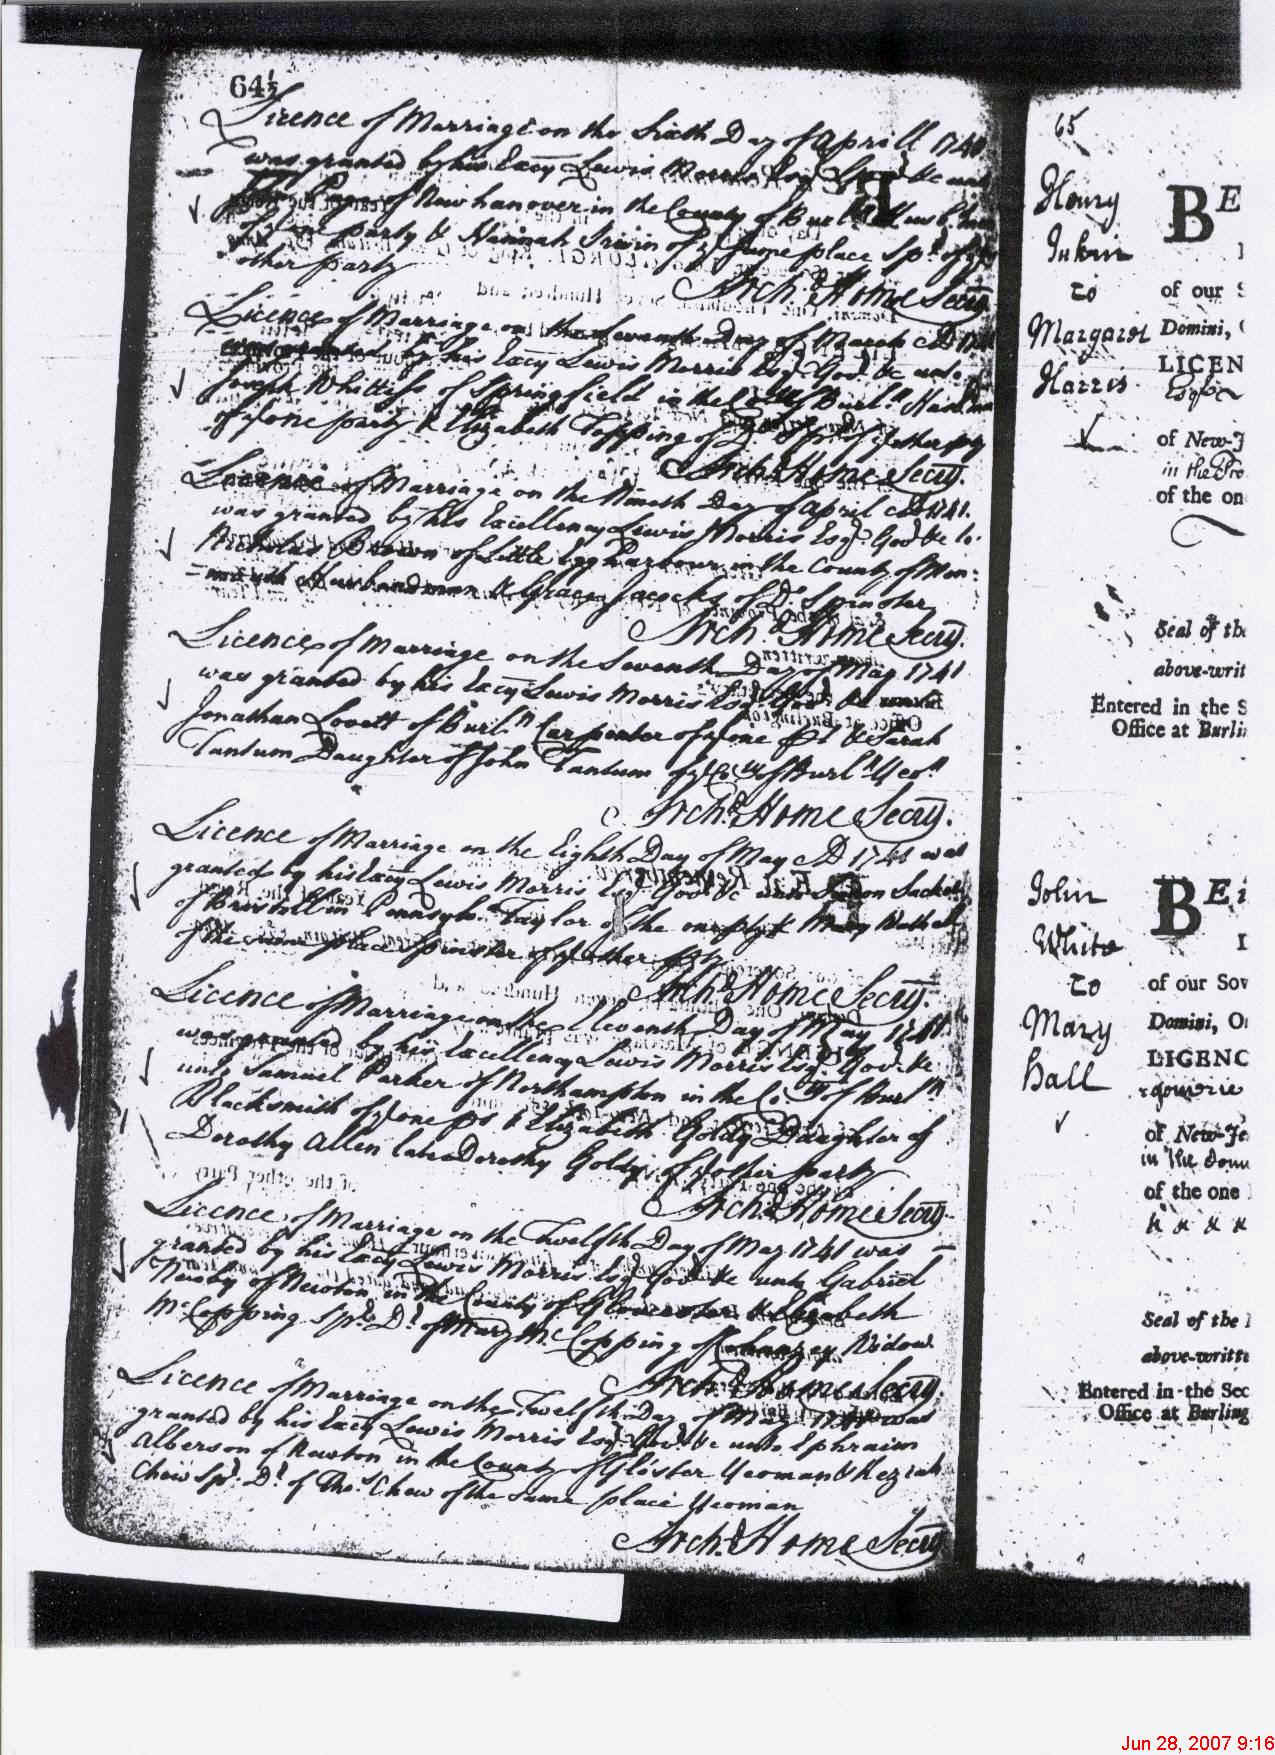 64½
Licence of Marriage on the Sixth Day of Aprill 1741
was granted by his Excy Lewis Morris Esqr Govr &c unto
of New hanover in the County of Burln
of ye one party & Hannah Irwin of ye same place Spr of ye
other party
Archd Home Secry.
Licence of Marriage on the Seventh Day of March AD
was granted by his Excy Lewis Morris Esqr Govr &c unto
Joseph of Springfield in the County Burln
of ye one party & Elizabeth Topping of Do Spr of ye other pty
Archd Home Secry.
Licence of Marriage on the Nineth Day of April AD 1741.
was granted by his Excellency Lewis Morris Esqr. Govr &c to
Nicholas Brown of Little Egg Harbour in the County of Mon:
=mouth Husbandman & Grace Jacocks of Do Spinster
Archd Home Secry.
Licence of Marriage on the Seventh Day of May 1741
was granted by his Excy Lewis Morris Esqr Govr &c
Jonathan Lovett of Burln Carpenter of ye one pt & Sarah
Tantum Daughter of John Tantum of ye Coty of Burln Yeon
Archd Home Secry.
Licence of Marriage on the Eighth Day of May AD 1741 was
granted by his Excy Lewis Morris Esqr Govr &c unto
of Bristoll in Pennsylva Taylor of the one pty & Mary
of the same place Spinster of ye other pty
Archd Home Secry.
Licence of Marriage on the Eleventh Day of May 1741
was granted by his Excellency Lewis Morris Esqr. Govr &c
unto Samuel Parker of Northampton in the Coty of Burln
Blacksmith of ye one pt & Elizabeth Goldy Daughter of
Dorothy Allen late Dorothy Goldy of ye other party
Archd Home Secry.
Licence of Marriage on the Twelfth Day of May 1741 was
granted by his Excy Lewis Morris Esqr Govr &c unto Gabriel
Newby of Newton in the County of Glouc & Elizabeth
McCopping Spr Dr of Mary McCopping of Widow
Archd Home Secry.
Licence of Marriage on the Twelfth Day of May 1741 was
granted by his Excy Lewis Morris Esqr Govr &c unto Ephraim
Alberson of Newton in the County of Gloster Yeoman & Keziah
Chew Spr. Dr. of Thos Chew of the same place Yeoman
Archd Home Secry
65
Henry
to
Margaret
Harris
BE
of our S
Domini,
LICEN
Esqr
of New-J
in the Pro
of the on
Seal of the
above-writ
Entered in the S
Office at Burli
John
White
to
Mary
hall
BE i
of our Sov
Domini, O
LICENC
of New-Je
in the
of the one
Seal of the
above-writte
Entered in the Sec
Office at Burling
Jun 28, 2007 9:16